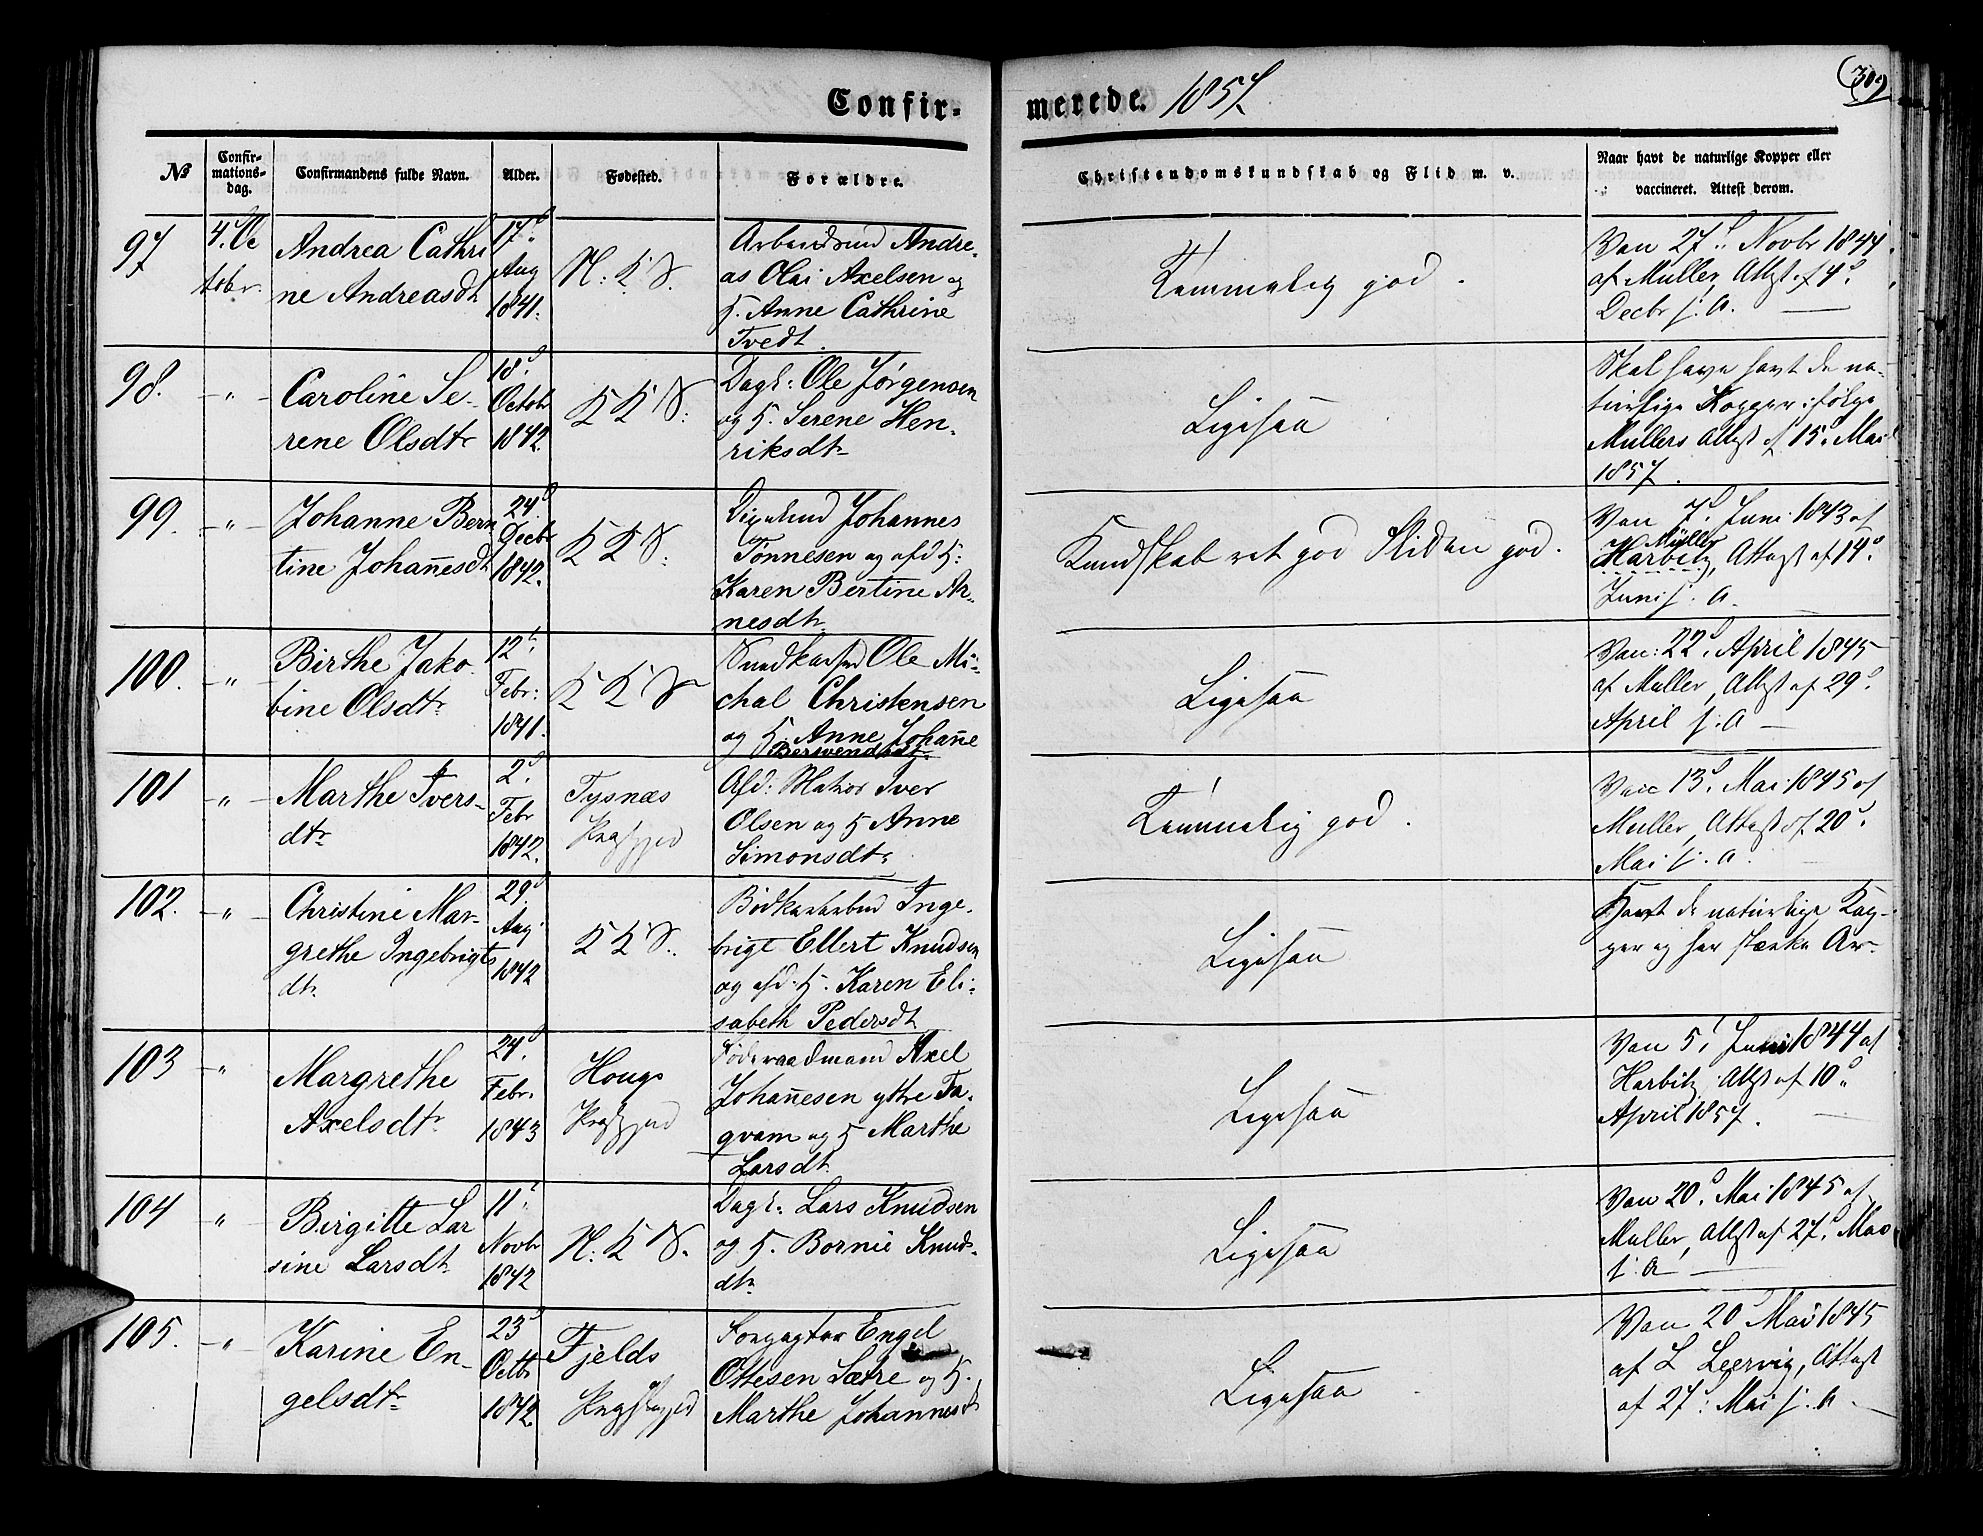 Confir-
merede. 1857
309
No
Confir-
mations-
dag.
Confirmandens fulde Navn.
Alder.
Fødested.
Forældre.
Christendomskundskab og Flid m. v.
Naar havt de naturlige Kopper eller
vaccineret. Attest derom.
97
4. Oc
tobr
Andrea Cathri
ne Andreasdt
17d
Aug
1841.
N: K S.
Arbeidsmd Andre-
as Olai Axelsen og
H. Anne Cathrine
Tvedt.
Temmelig god.
Vac 27d Novbr 1844
af Muller, Attest af 4d
Decbr s. A.
98.
-"-
Caroline Se-
rene Olsdtr
18d
Octobr
1842.
K K S.
Dagk: Ole Jørgensen
og H. Serene Hen-
riksdtr
Ligesaa
Skal have havt de na-
turlige Kopper ifølge
Mullers Attest af 15d Mai
1857.
99.
-"-
Johanne Bern
tine Johañesdt
24d
Decbr
1842.
K K S.
Johannes
Tønnesen og afd H:
Karen Bertine Ar-
nesdtr
Kundskab ret god Fliden god.
Vac 7d Juni 1843 af
Müller
Harbitz, Attest af 14d
Juni s. A.
100.
-"-
Birthe Jako
bine Olsdtr
12t
Febr:
1841.
K K S
Ole Mi-
chal Christensen
og H. Anne Johañe
Ligesaa
Vac: 22d April 1845
af Muller, Attest af 29d
April s. A
101
-"-
Marthe Ivers-
dtr
2d
Febr
1842.
Tysnæs
Præstegjed
Afd: Matros Iver
Olsen og H Anne
Simonsdtr
Temmelig god.
Vac 13d Mai 1845 af
Muller, Attest af 20d
Mai s. A.
102.
-"-
Christine Mar-
grethe Ingebrigts
dtr
29d
Aug
1842
K K S.
Bødkerarbmd Inge-
brigt Ellert Knudsen
og afd: H. Karen Eli-
sabeth Pedersdt
Ligesaa
Havt de naturlige Kop-
per og har stærke Ar-
103
-"-
Margrethe
Axelsdtr
24d
Febr.
1843
Hougs
Præstegjed
Føderaadmand Axel
Johañesen yttre Ta-
qvam og H Marthe
Larsdt
Ligesaa
Vac 5t Juni 1844 af
Harbitz, Attest af 10d
April 1857.
104
"
Birgitte Lar
sine Larsdtr
11t
Novbr
1842
N: K S.
Dagk: Lars Knudsen
og H. Borni Knuds-
dtr
Ligesaa
Vac 20d Mai 1845 af
Muller, Attest af 27d Mai
s. A
105.
-"-
Karine En-
gelsdtr
23d
Octbr
1842.
Fjelds
Præstegjed
Forpagter Engel
Ottesen Sætre og H.
Marthe Johannesdt
Ligesaa
Vac 20d Mai 1845
af L Leervig, Attest
af 27d Mai s. A